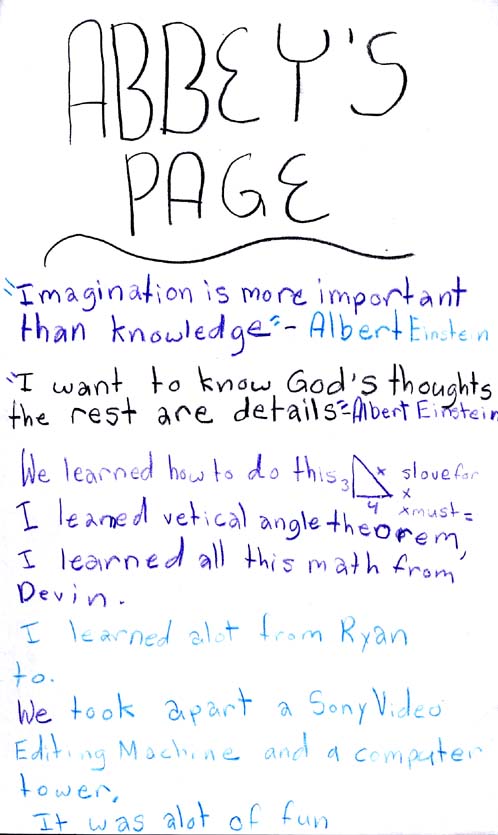 ABBEY'S
PAGE
"Imagination is more important
than knowledge" - Albert Einstein
"I want to know God's thoughts
the rest are details" - Albert Einstein
We learned how to do this 3 x slove for
4 x
xmust =
I learned vetical angle theorem,
I learned all this math from
Devin.
I learned alot from Ryan
to.
We took apart a Sony Video
Editing Machine and a computer
tower,
It was alot of fun